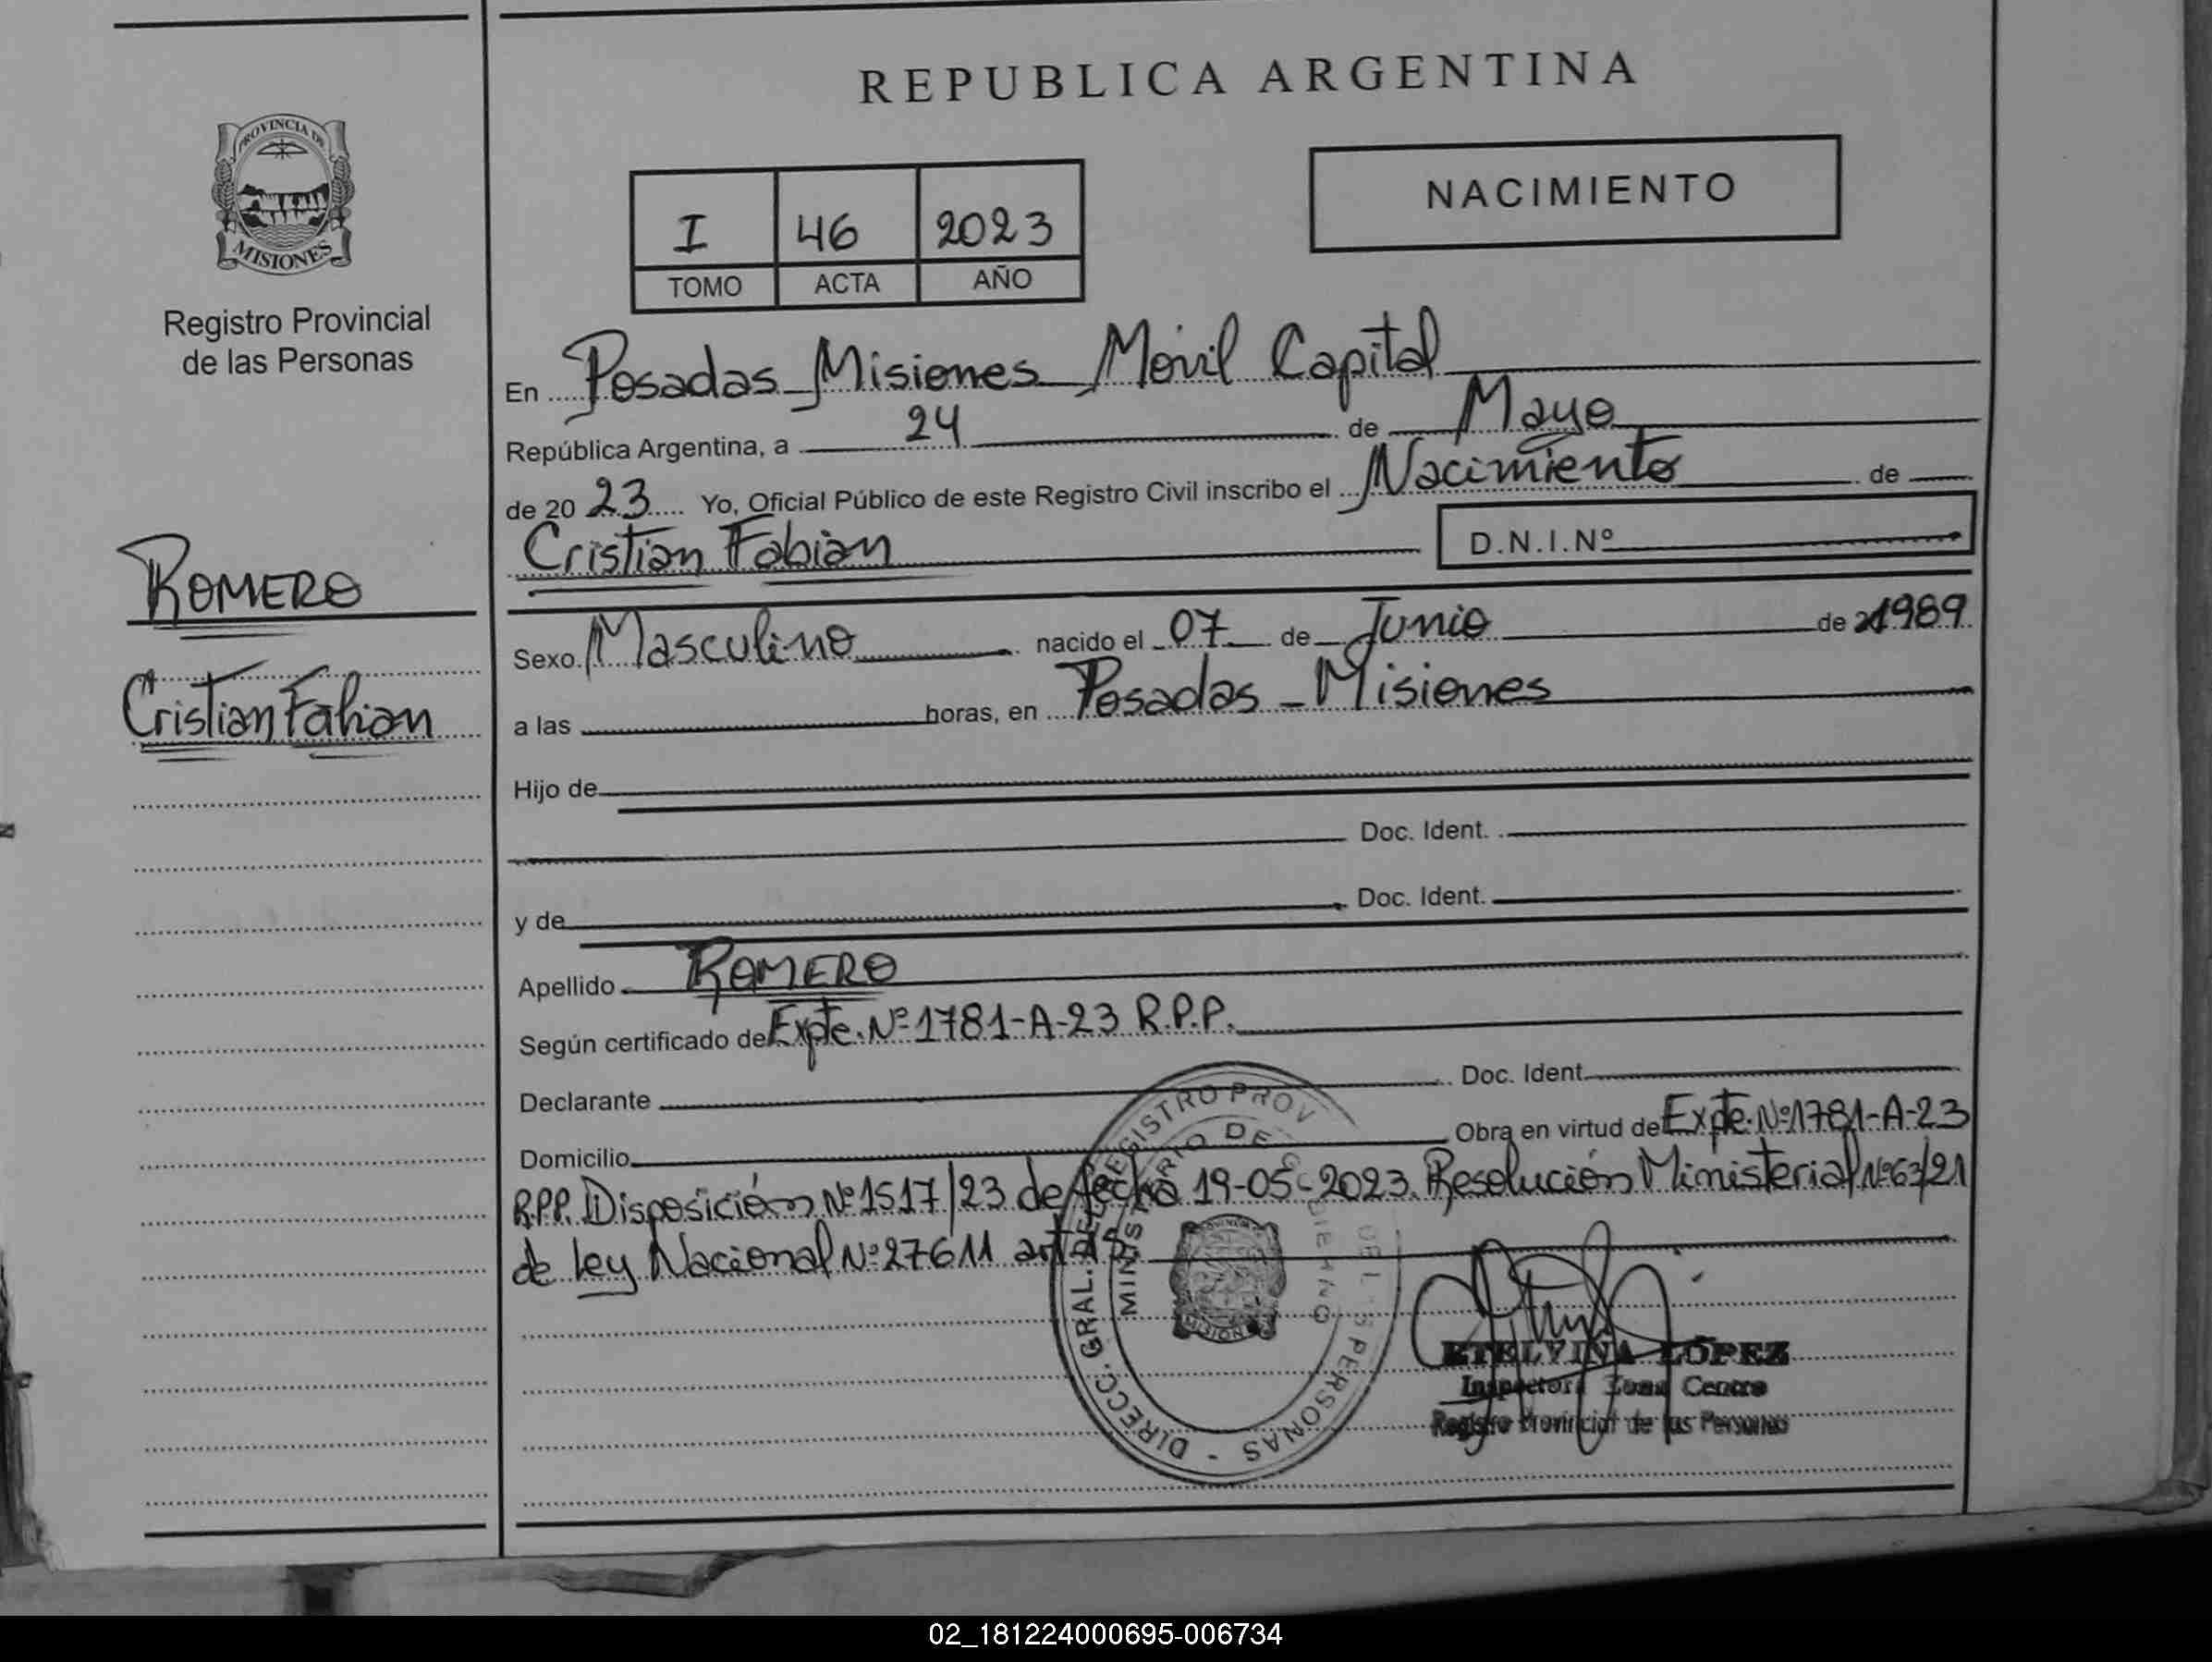 REPUBLICA ARGENTINA
PROVINCIA DE
MISIONES
Registro Provincial
de las Personas
NACIMIENTO
I 46 2023
TOMO ACTA AÑO
En Posadas Misiones Móvil Capital
República Argentina, a 24 de Mayo
de 20 23 Yo, Oficial Público de este Registro Civil inscribo el Nacimiento de
Cristian Fabian D.N.I.Nº
ROMERO
Cristian Fabian
Sexo Masculino nacido el 07 de Junio de 1989
a las horas, en Posadas - Misiones
Hijo de
Doc. Ident.
y de Doc. Ident.
Apellido ROMERO
Según certificado de Expte. Nº 1781-A-23 R.P.P.
Declarante Doc. Ident.
Domicilio Obra en virtud de Expte. Nº 1781-A-23
R.P.P. Disposición Nº 1517/23 de fecha 19-05-2023. Resolución Ministerial Nº 63/21
de Ley Nacional Nº 27611
DIRECC. GRAL. REGISTRO PROV DE L S PERSONAS -
MINISTERIO DE
MISIONES
ETELVINA LÓPEZ
Inspectora Zona Centro
Registro Provincial de las Personas
02_181224000695-006734